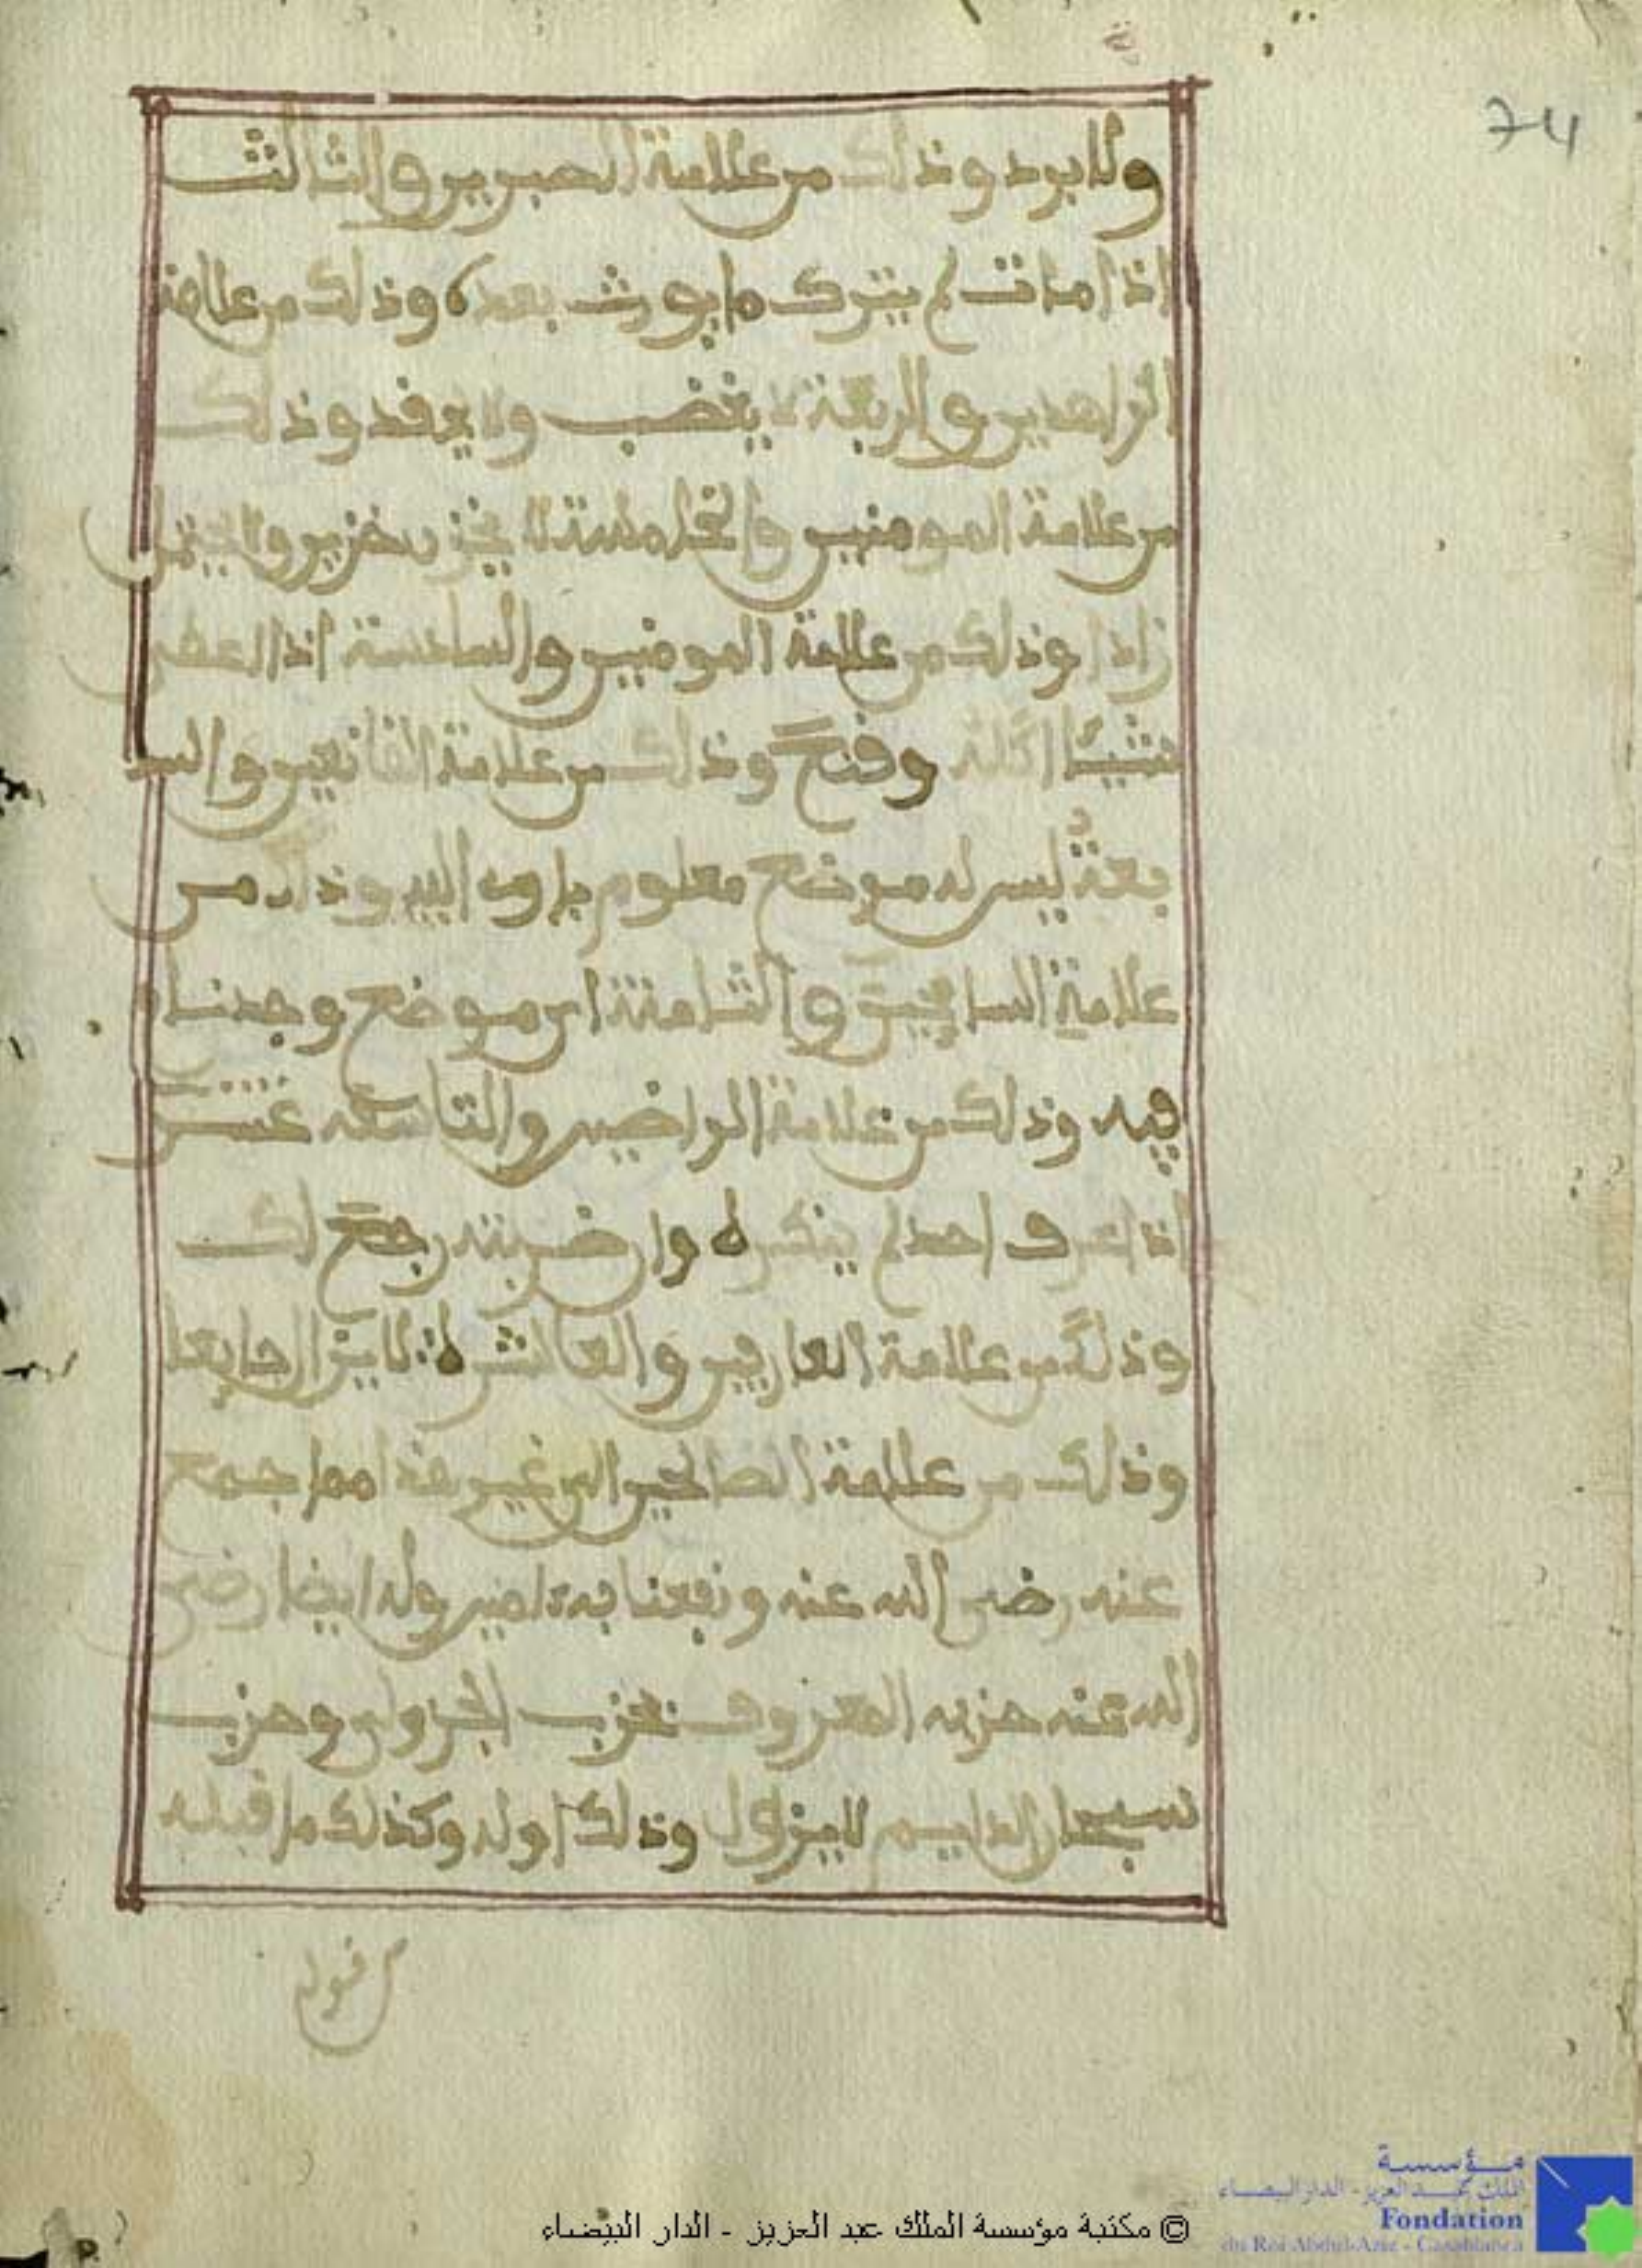 74
ولا برد وذلك من علامة الصبرين والثالث
اذا مات لم يترك ما يورث بعده وذلك من علامة
الزاهدين والربعة لا يغضب ولا يحقد وذلك
من علامة المومنين والخامسة لا يخزن خزين ولا يحتمل
زادا وذلك من علامة المومنين والسادسة اذا اعطي
شيئا اكله وقنع وذلك من علامة القانعين والسا
بعة ليس له موضع معلوم ياوي اليه وذلك من
علامة السايحين والثامنة اي موضع وجدناه
فيه وذلك من علامة الراضين والتاسعة عشر
اذا عرف احد لم ينكره وان ضربته رجع لك
وذلك من علامة العارفين والعاشرة لا يزال جايعا
وذلك من علامة الصالحين الى غير هذا مما جمع
عنه رضي الله عنه ونفعنا به ءامين وله ايضا رضي
الله عنه حزبه المعروف بحزب الجزولي وحزب
سبحان الدايم لا يزول وذلك اوله وكذلك ما قبله
من قوله
© مكتبة مؤسسة الملك عبد العزيز - الدار البيضاء
مؤسسة
الملك عبد العزيز - الدار البيضاء
Fondation
du Roi Abdul-Aziz - Casablanca